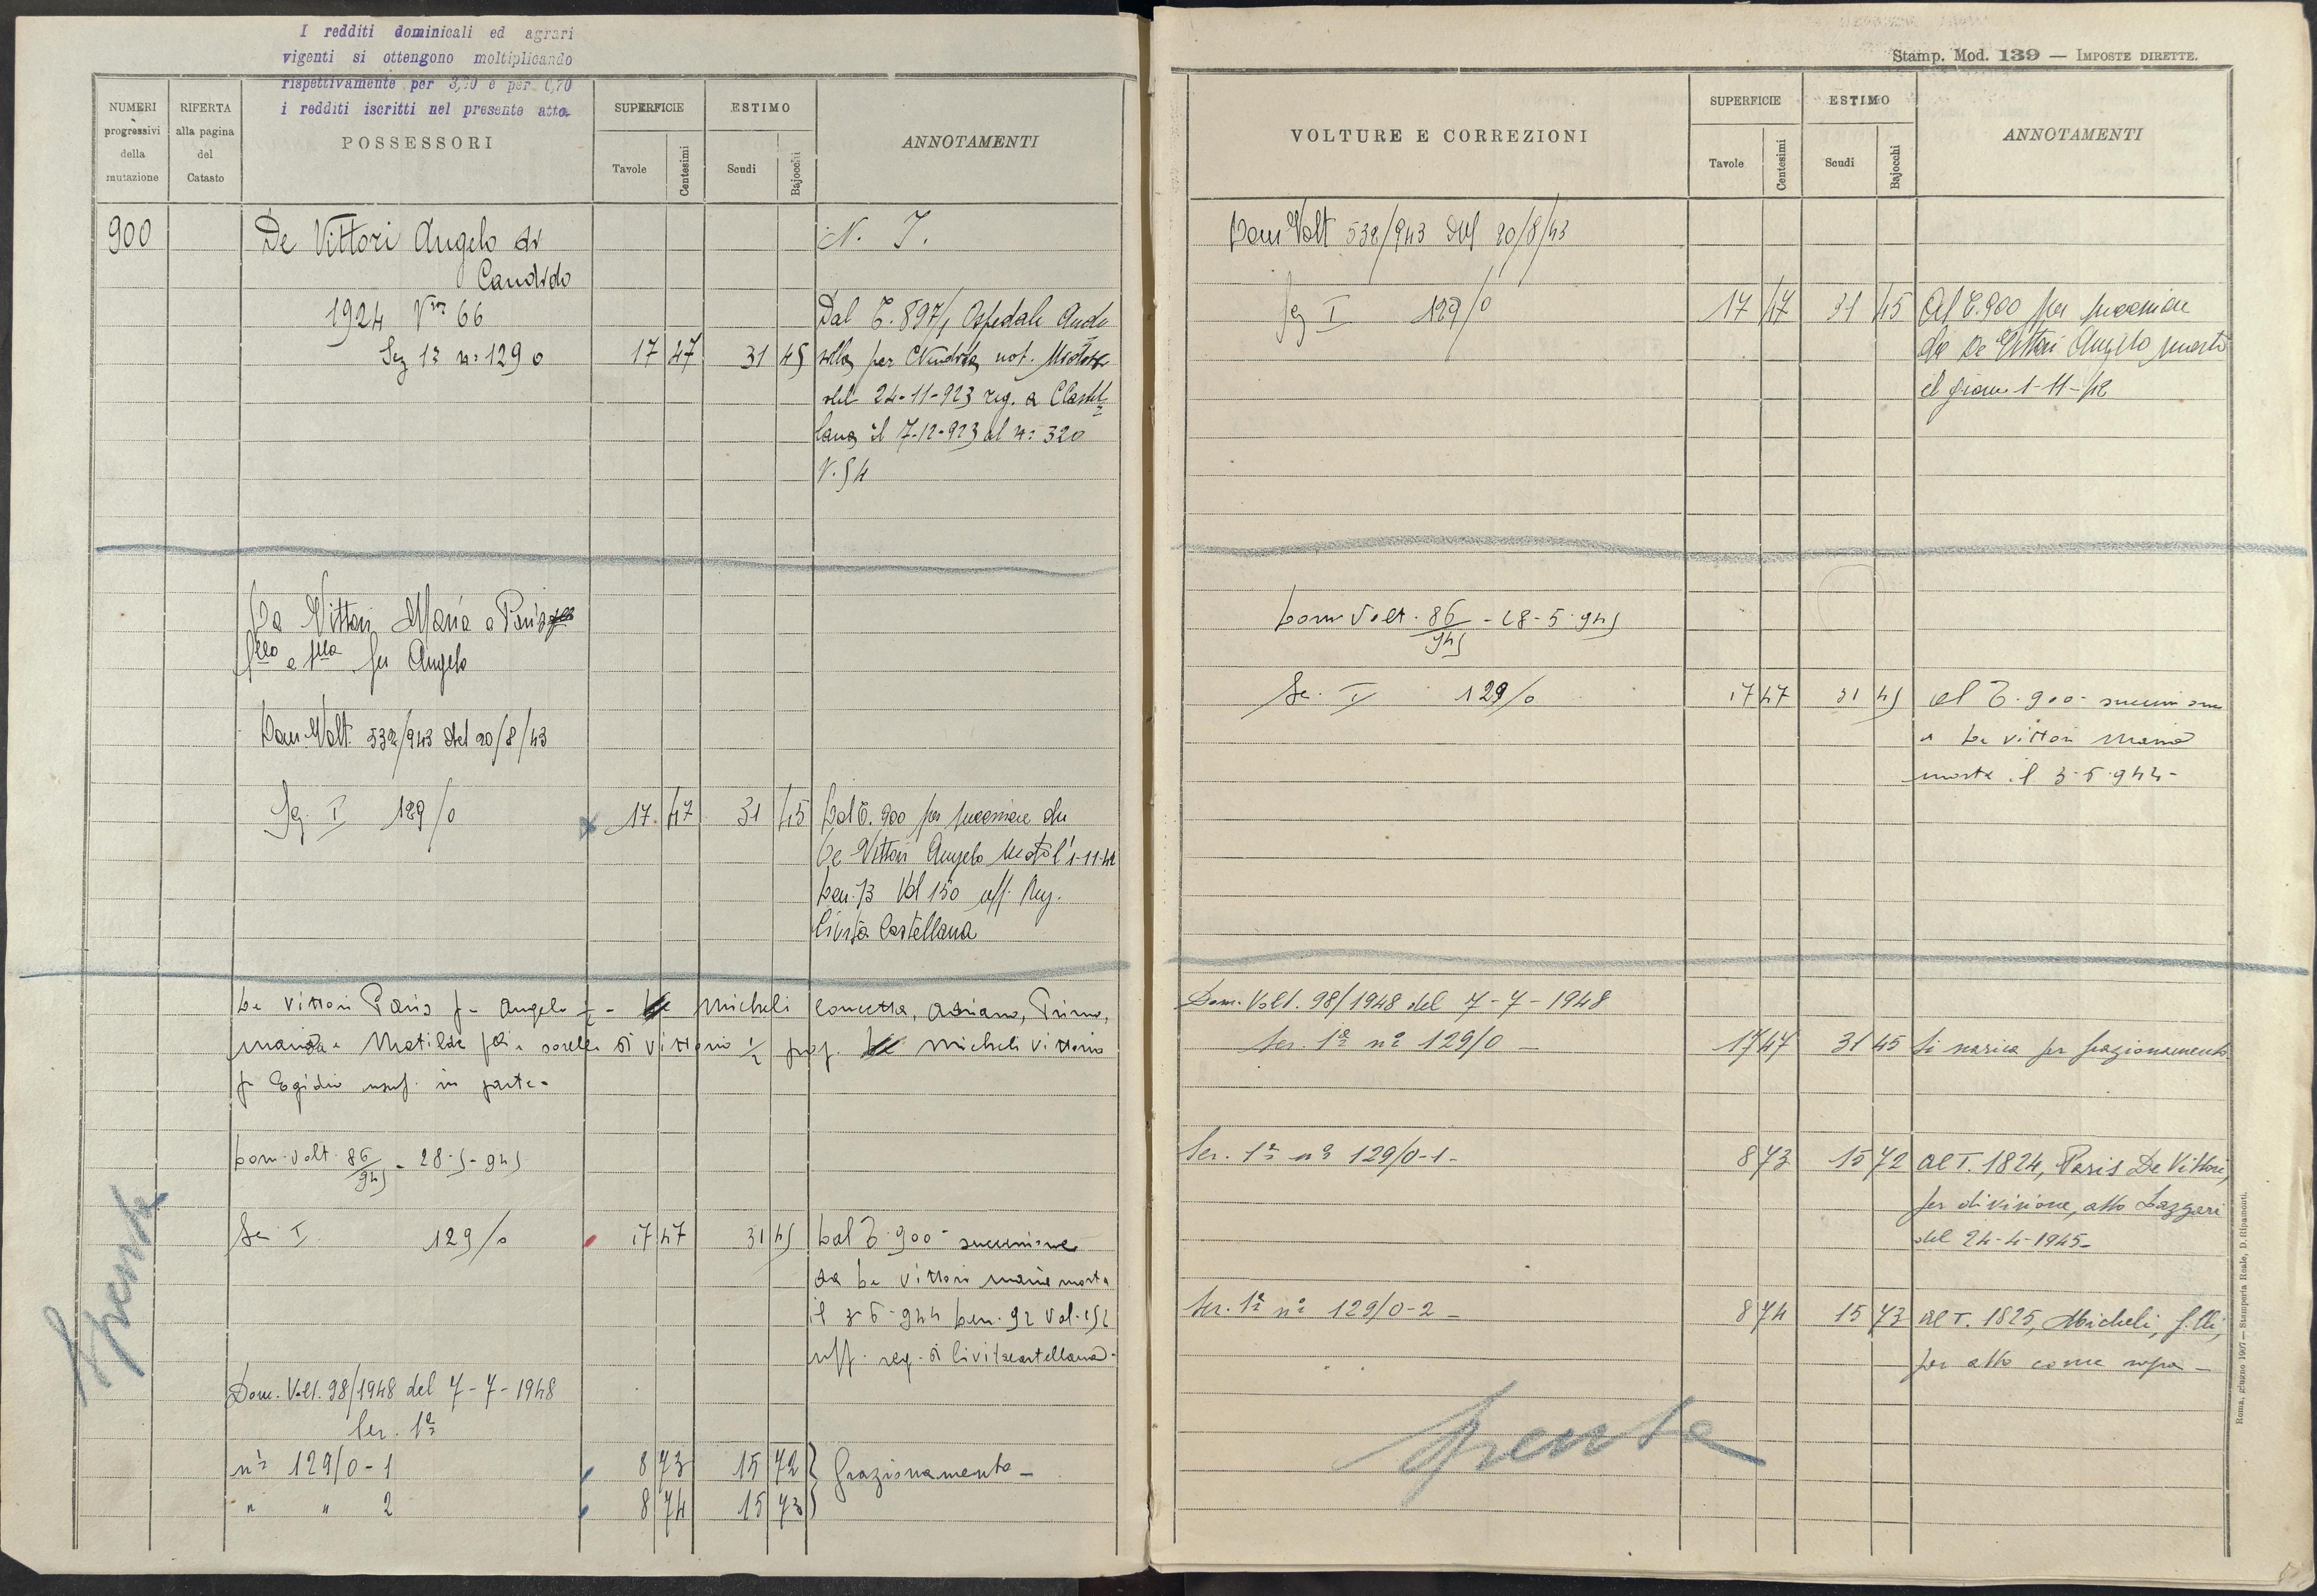 I redditi dominicali ed agrari
vigenti si ottengono moltiplicando
rispettivamente per 3,10 e per 0,70
i redditi iscritti nel presente atto.
NUMERI progressivi della mutazione
RIFERTA alla pagina del Catasto
POSSESSORI
SUPERFICIE
Tavole
Centesimi
ESTIMO
Scudi
Bajocchi
ANNOTAMENTI
900
De Vittori Angelo di
N. I.
Candido
1924 Vra 66
Dal T. 897/1 Ospedale Ando
Sez 1ª nº 129 0
17 47
31 45
silla per Vendita not.
del 24-11-923 reg. a C Castel
lana il 7-12-923 al nº 320
V. 54
De Vittori Maria e Paris
f.llo e s.lla fu Angelo
Dom. Volt. 532/943 del 20/8/43
Sez. I 129/0
17 47
31 45
Dal T. 900 per successione da
De Vittori Angelo morto l'1-11-42
Den. 73 Vol 150 uff. Reg.
Civita Castellana
De Vittori Paris fu Angelo 1/2 - Micheli Concetta, Adriano, Primo,
Maria e Matilde f.lli e sorelle di Vittorio 1/2 prop. Micheli Vittorio
fu Egidio usuf. in parte -
Dom. volt. 86/945 - 28-5-945
Se. I 129/0
17 47
31 45
Dal T. 900 - successione
da De Vittori Maria morta
il 3-5-944 Den. 92 Vol. 152
uff. reg. di Civitacastellana -
Dom. Volt. 98/1948 del 7-7-1948
Sez. 1ª
nº 129/0-1
8 73
15 72
frazionamento -
" " 2
8 74
15 73
Spenta
Stamp. Mod. 139 — IMPOSTE DIRETTE.
VOLTURE E CORREZIONI
SUPERFICIE
Tavole
Centesimi
ESTIMO
Scudi
Bajocchi
ANNOTAMENTI
Dom Volt 532/943 del 20/8/43
Sez I 129/0
17 47
31 45
Al T. 900 per successione
da De Vittori Angelo morto
il giorno 1-11-42
Dom Volt. 86/945 - 28-5-945
Se. I 129/0
17 47
31 45
al T. 900 - successione
a De Vittori Maria
morta il 3-5-944 -
Dom. Volt. 98/1948 del 7-7-1948
Sez. 1ª nº 129/0 -
17 47
31 45
Si scarica per frazionamento
Sez. 1ª nº 129/0-1 -
8 73
15 72
al T. 1824, Paris De Vittori,
per divisione, atto Lazzari
del 24-4-1945 -
Sez. 1ª nº 129/0-2 -
8 74
15 73
al T. 1825, Micheli, f.lli,
per atto come sopra -
Spenta
Roma, giugno 1907 — Stamperia Reale, D. Ripamonti.